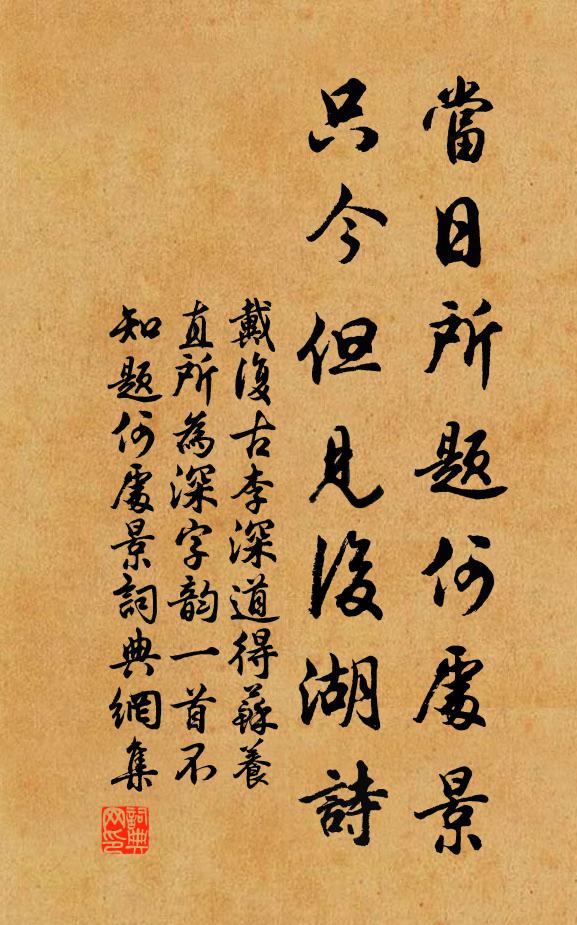 當日所題何處景
只今但見後湖詩
戴復古李深道得蘇養
直所為深字韵一首不
知題何處景詞典網集
詞典网印